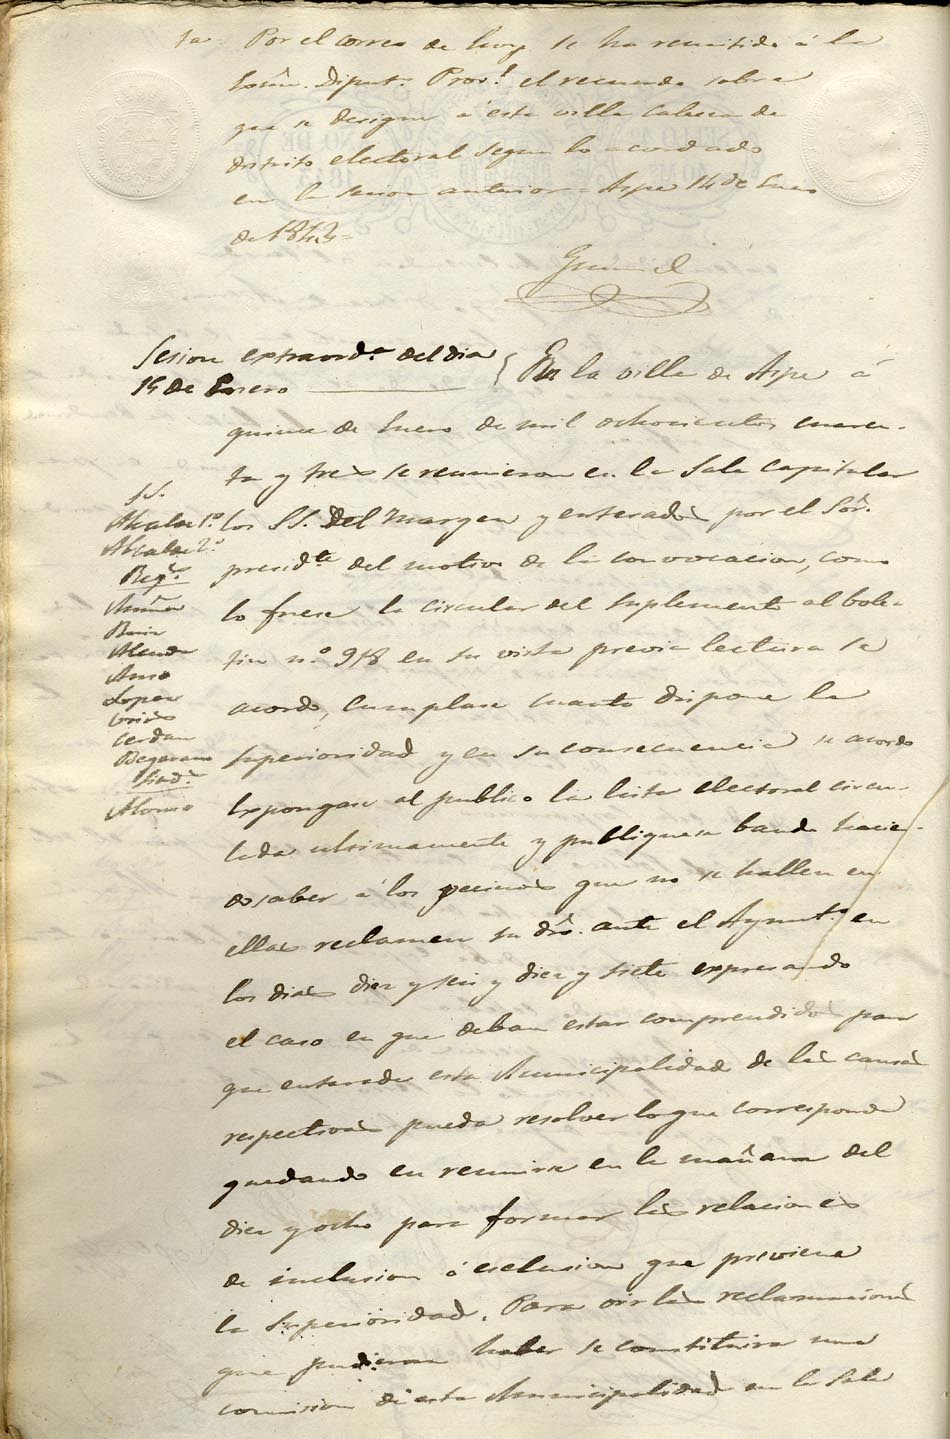 ta Por el correo de hoy se ha remitido á la
Exma. Diput.n Prov.l el recuerdo sobre
que se designe á esta villa cabeza de
distrito electoral segun lo acordado
en la sesion anterior = Aspe 14 de Enero
de 1843 =
Sesion extraord.a del dia
15 de Enero
En la villa de Aspe á
quince de Enero de mil ochocientos cuaren-
ta y tres se reunieron en la Sala capitular
SS.
Alcalde 1.º
Alcalde 2.º
Reg.s
Almodovar
Alenda
Lopez
Cerdan
Begarano
Sind.s
Alonso
los SS. del margen y enterados por el Sór.
presid.te del motivo de la convocacion, como
lo fuese la circular del suplemento al bole-
tin n.º 918 en su vista previa lectura se
acordó, cumplase cuanto dispone la
superioridad y en su consecuencia se acordó
Expongase al publico la lista electoral circu-
lada ultimamente y publiquese bando hacien-
do saber á los vecinos que no se hallen en
ellas reclamen su dro. ante el Ayunt.o en
los dias diez y seis y diez y siete expresando
el caso en que deban estar comprendidos para
que enterada esta Municipalidad de las causas
respectivas pueda resolver lo que corresponda
quedando en reunirse en la mañana del
diez y ocho para formar las relaciones
de inclusion ó esclusion que previene
la Superioridad. Para oir las reclamaciones
que pudieran haber se constituira una
comision de esta Municipalidad en la Sala